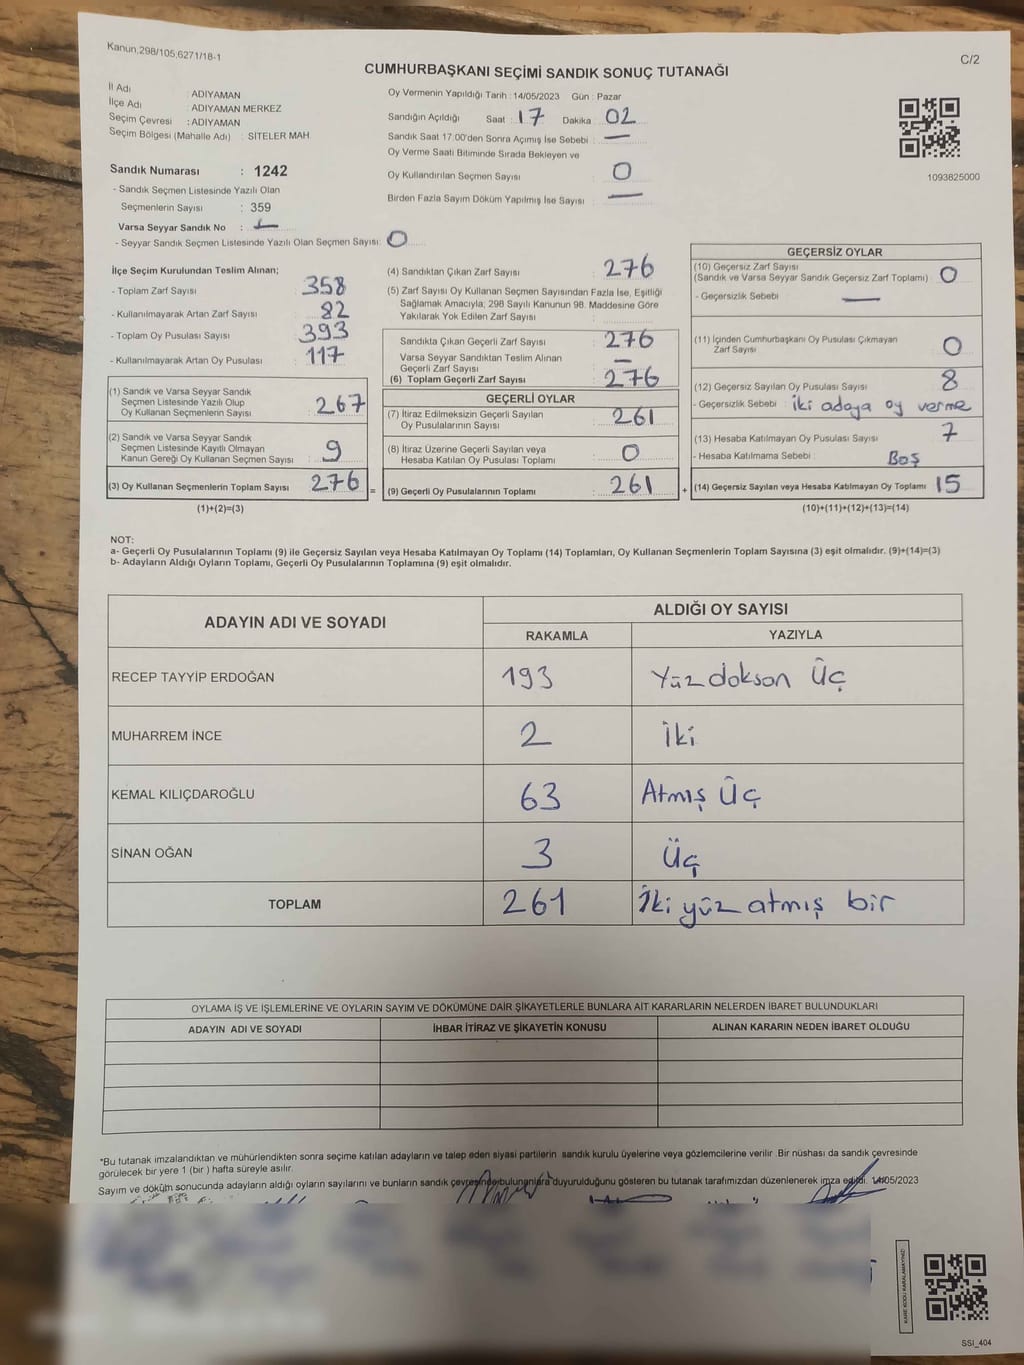 Kanun.298/105,6271/18-1
C/2
CUMHURBAŞKANI SEÇİMİ SANDIK SONUÇ TUTANAĞI
İl Adı : ADIYAMAN
İlçe Adı : ADIYAMAN MERKEZ
Seçim Çevresi : ADIYAMAN
Seçim Bölgesi (Mahalle Adı) : SİTELER MAH.
Sandık Numarası : 1242
- Sandık Seçmen Listesinde Yazılı Olan
Seçmenlerin Sayısı : 359
Varsa Seyyar Sandık No : —
- Seyyar Sandık Seçmen Listesinde Yazılı Olan Seçmen Sayısı: 0
Oy Vermenin Yapıldığı Tarih :14/05/2023 Gün : Pazar
Sandığın Açıldığı Saat : 17 Dakika : 02
Sandık Saat 17.00'den Sonra Açımış İse Sebebi : —
Oy Verme Saati Bitiminde Sırada Bekleyen ve
Oy Kullandırılan Seçmen Sayısı : 0
Birden Fazla Sayım Döküm Yapılmış İse Sayısı : —
1093825000
İlçe Seçim Kurulundan Teslim Alınan;
- Toplam Zarf Sayısı : 358
- Kullanılmayarak Artan Zarf Sayısı : 82
- Toplam Oy Pusulası Sayısı : 393
- Kullanılmayarak Artan Oy Pusulası : 117
(1) Sandık ve Varsa Seyyar Sandık
Seçmen Listesinde Yazılı Olup
Oy Kullanan Seçmenlerin Sayısı : 267
(2) Sandık ve Varsa Seyyar Sandık
Seçmen Listesinde Kayıtlı Olmayan
Kanun Gereği Oy Kullanan Seçmen Sayısı : 9
(3) Oy Kullanan Seçmenlerin Toplam Sayısı : 276 =
(1)+(2)=(3)
(4) Sandıktan Çıkan Zarf Sayısı : 276
(5) Zarf Sayısı Oy Kullanan Seçmen Sayısından Fazla İse, Eşitliği
Sağlamak Amacıyla; 298 Sayılı Kanunun 98. Maddesine Göre
Yakılarak Yok Edilen Zarf Sayısı :
Sandıkta Çıkan Geçerli Zarf Sayısı : 276
Varsa Seyyar Sandıktan Teslim Alınan
Geçerli Zarf Sayısı : —
(6) Toplam Geçerli Zarf Sayısı : 276
GEÇERLİ OYLAR
(7) İtiraz Edilmeksizin Geçerli Sayılan
Oy Pusulalarının Sayısı : 261
(8) İtiraz Üzerine Geçerli Sayılan veya
Hesaba Katılan Oy Pusulası Toplamı : 0
(9) Geçerli Oy Pusulalarının Toplamı : 261 +
GEÇERSİZ OYLAR
(10) Geçersiz Zarf Sayısı
(Sandık ve Varsa Seyyar Sandık Geçersiz Zarf Toplamı) : 0
- Geçersizlik Sebebi : —
(11) İçinden Cumhurbaşkanı Oy Pusulası Çıkmayan
Zarf Sayısı : 0
(12) Geçersiz Sayılan Oy Pusulası Sayısı : 8
- Geçersizlik Sebebi : iki adaya oy verme
(13) Hesaba Katılmayan Oy Pusulası Sayısı : 7
- Hesaba Katılmama Sebebi : Boş
(14) Geçersiz Sayılan veya Hesaba Katılmayan Oy Toplamı : 15
(10)+(11)+(12)+(13)=(14)
NOT:
a- Geçerli Oy Pusulalarının Toplamı (9) ile Geçersiz Sayılan veya Hesaba Katılmayan Oy Toplamı (14) Toplamları, Oy Kullanan Seçmenlerin Toplam Sayısına (3) eşit olmalıdır. (9)+(14)=(3)
b- Adayların Aldığı Oyların Toplamı, Geçerli Oy Pusulalarının Toplamına (9) eşit olmalıdır.
ADAYIN ADI VE SOYADI
ALDIĞI OY SAYISI
RAKAMLA YAZIYLA
RECEP TAYYİP ERDOĞAN 193 Yüzdokson Üç
MUHARREM İNCE 2 İki
KEMAL KILIÇDAROĞLU 63 Atmış Üç
SİNAN OĞAN 3 Üç
TOPLAM 261 İki yüz atmış bir
OYLAMA İŞ VE İŞLEMLERİNE VE OYLARIN SAYIM VE DÖKÜMÜNE DAİR ŞİKAYETLERLE BUNLARA AİT KARARLARIN NELERDEN İBARET BULUNDUKLARI
ADAYIN ADI VE SOYADI İHBAR İTİRAZ VE ŞİKAYETİN KONUSU ALINAN KARARIN NEDEN İBARET OLDUĞU
*Bu tutanak imzalandıktan ve mühürlendikten sonra seçime katılan adayların ve talep eden siyasi partilerin sandık kurulu üyelerine veya gözlemcilerine verilir .Bir nüshası da sandık çevresinde
görülecek bir yere 1 (bir ) hafta süreyle asılır.
Sayım ve döküm sonucunda adayların aldığı oyların sayılarını ve bunların sandık çevresinde bulunanlara duyurulduğunu gösteren bu tutanak tarafımızdan düzenlenerek imza edildi. 14/05/2023
KARE KODU KARALAMAYINIZ!
SSI_404